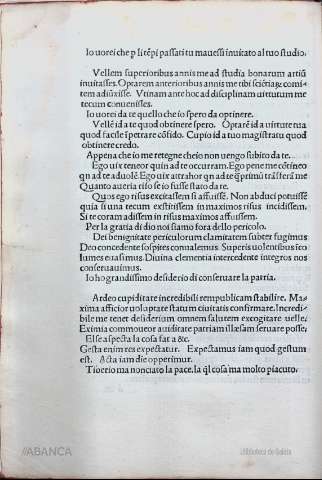 Io uorei che p li tẽpi passati tu mauessi inuitato al tuo studio.
Vellem superioribus annis me ad studia bonarum artiũ
inuitasses. Optarem anterioribus annis me tibi sciẽtiaꝝ comi-
tem adiũxisse. Vtinam ante hoc ad disciplinam uirtutum me
tecum conuenisses.
Io uorei da te quello che io spero da optinere.
Vellẽ id a te quod obtinere spero. Optarẽ id a uirtute tua
quod facile ĩpetrare cõfido. Cupio id a tuo magistratu quod
obtinere credo.
Appena che io me retegne che io non uengo subito da te.
Ego uix teneor quin ad te occurram. Ego pene me cõtineo
qn ad te aduolẽ. Ego uix attrahor qn ad te q̃primũ trãsferã me
Quanto aueria riso se io fusse stato da te.
Quos ego risus excitassem si affuissẽ. Non abduci potuissẽ
quia si una tecum extitissem in maximos risus incidissem.
Si te coram adissem in risus maximos affuissem.
Per la gratia di dio noi siamo fora dello pericolo.
Dei benignitate periculorum clamitatem subter fugimus
Deo concedente sospites conualemus. Superis uolentibus sco
lumes euasimus. Diuina clementia intercedente integros nos
conseruauimus.
Io ho grandissimo desiderio di conseruare la patria.
Ardeo cupiditate incredibili rempublicam stabilire. Ma-
xima afficior uoluptate statum ciuitatis confirmare. Incredi-
bile me tenet desiderium omnem salutem excogitare uelle.
Eximia commoueor auiditate patriam illæsam seruare posse.
El se aspecta la cosa fat a &c.
Gesta enim res expectatur. Expectamus iam quod gestum
est. Acta iam die opperimur.
Tioerio ma nonciato la pace. la q̃l cosa ma molto piaciuto.
ABANCA
Biblioteca de Galicia